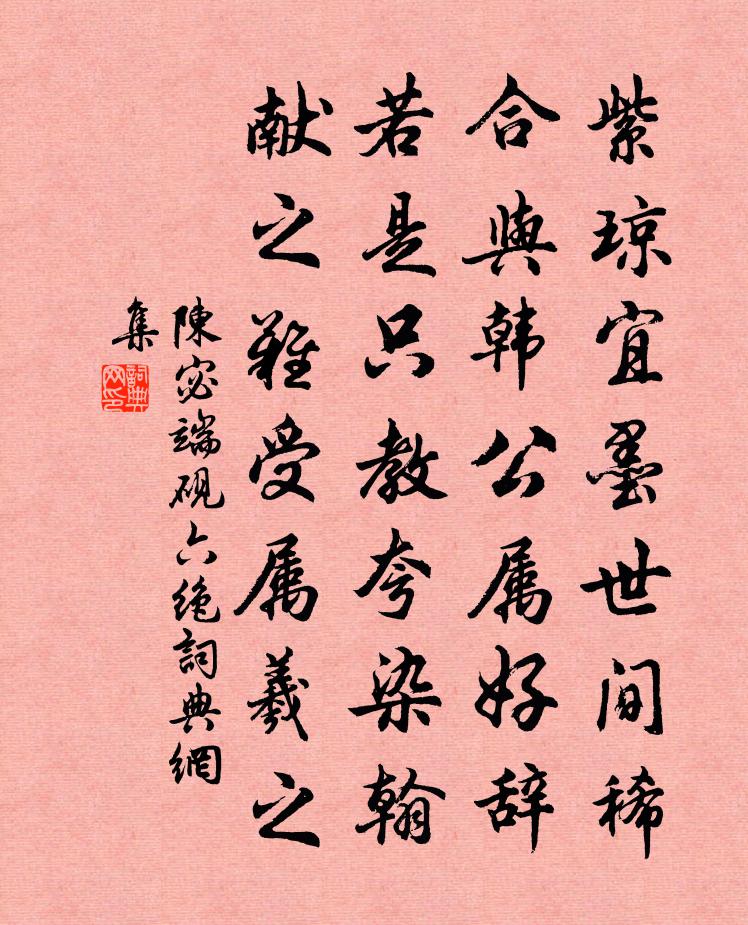 紫琼宜墨世间稀
合與韩公属好辞
若是只教夸染翰
献之难受属羲之
陳宓端硯六絶詞典網
集
詞典网印